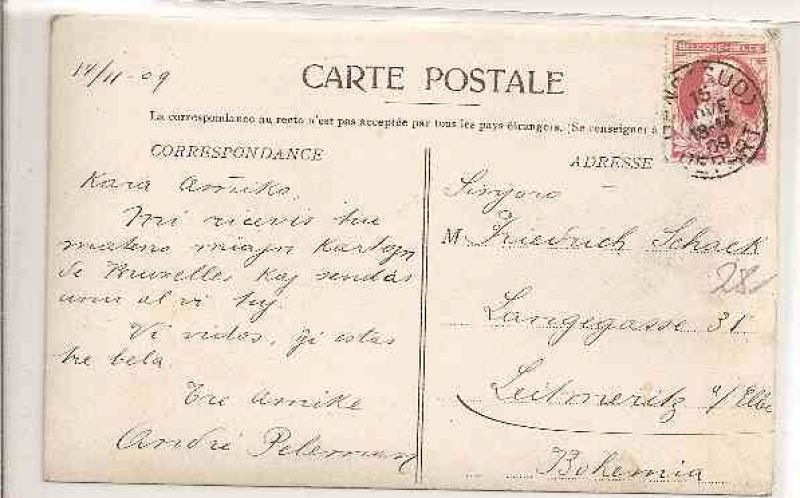 14/11-09
CARTE POSTALE
La correspondance au recto n'est pas acceptée par tous les pays étrangers. (Se renseigner à
CORRESPONDANCE
Kara Amiko,
Mi ricevis tiu
mateno miajn kartojn
de Bruxelles kaj sendas
unu al vi tuj.
Vi vidos, ĝi estas
tre bela.
Tre amike
André Peleman
ADRESSE
Sinjoro
M Friedrich Schack
Langegasse 31
Leitmeritz a/Elbe
Bohemia
28
BELGIQUE-BELGIË
(SUD)
15
NOVE
09
DEPART